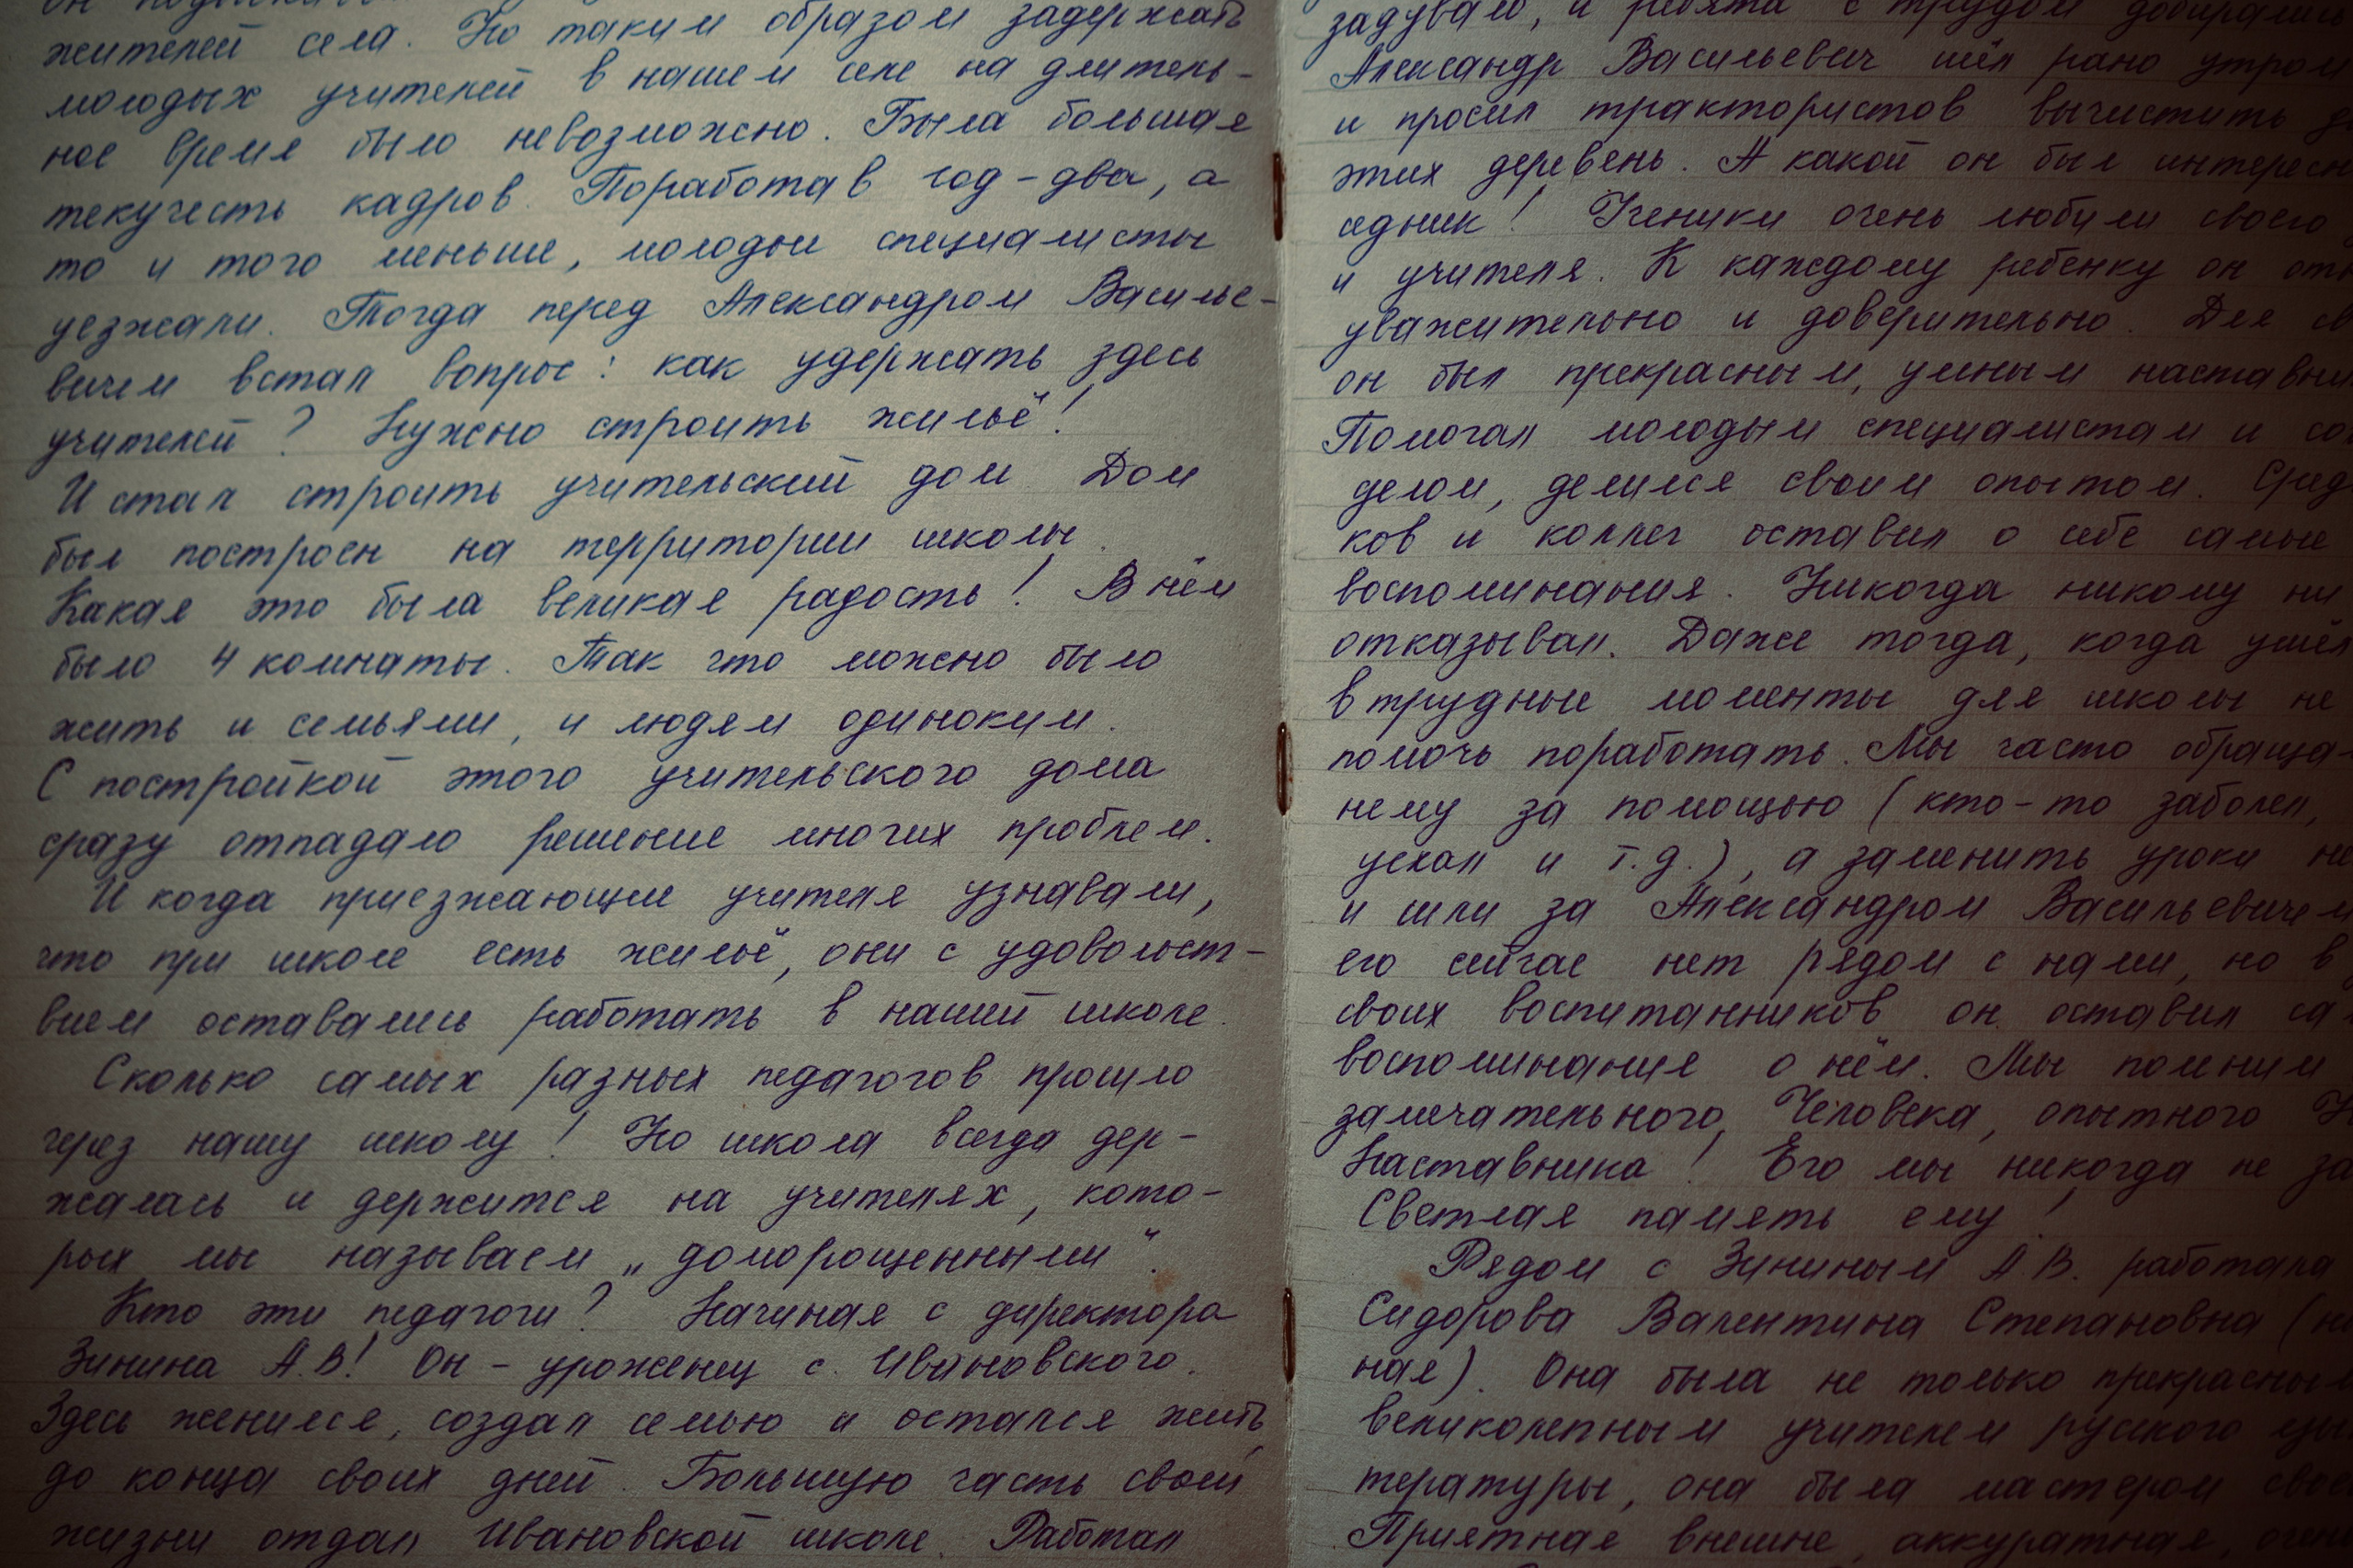 жителей села. Но таким образом задержать
молодых учителей в нашем селе на длитель-
ное время было невозможно. Была большая
текучесть кадров. Поработав год-два, а
то и того меньше, молодые специалисты
уезжали. Тогда перед Александром Василье-
вичем встал вопрос: как удержать здесь
учителей? Нужно строить жильё!
И стал строить учительский дом Дом
был построен на территории школы.
Какая это была великая радость! В нём
было 4 комнаты. Так что можно было
жить и семьями, и людям одиноким.
С постройкой этого учительского дома
сразу отпадало решение многих проблем.
И когда приезжающие учителя узнавали,
что при школе есть жильё, они с удовольст-
вием оставались работать в нашей школе.
Сколько самых разных педагогов прошло
через нашу школу! Но школа всегда дер-
жалась и держится на учителях, кото-
рых мы называем „доморощенными“.
Кто эти педагоги? Начиная с директора
Зинина А.В! Он - уроженец с. Ивановского.
Здесь женился, создал семью и остался жить
до конца своих дней. Большую часть своей
жизни отдал Ивановской школе. Работал
задувало, и ребята с трудом добирались
Александр Васильевич шёл рано утром
и просил трактористов вычистить
этих деревень. А какой он был
седник! Ученики очень любили своего
и учителя. К каждому ребенку он
уважительно и доверительно. Для
он был прекрасным, умным
Помогал молодым специалистам и
делом, делился своим опытом.
ков и коллег оставил о себе самые
воспоминания. Никогда никому ни
отказывал. Даже тогда, когда ушёл
в трудные моменты для школы не
помочь поработать. Мы часто обраща-
нему за помощью (кто-то заболел,
уехал и т.д.), а заменить уроки
и шли за Александром Васильевичем
его сейчас нет рядом с нами, но в
своих воспитанников он оставил
воспоминание о нём. Мы помним
замечательного Человека, опытного
Наставника! Его мы никогда не
Светлая память ему!
Рядом с Зининым А.В. работала
Сидорова Валентина Степановна
ная). Она была не только
великолепным учителем русского
тературы, она была мастером
Приятная внешне, аккуратная,